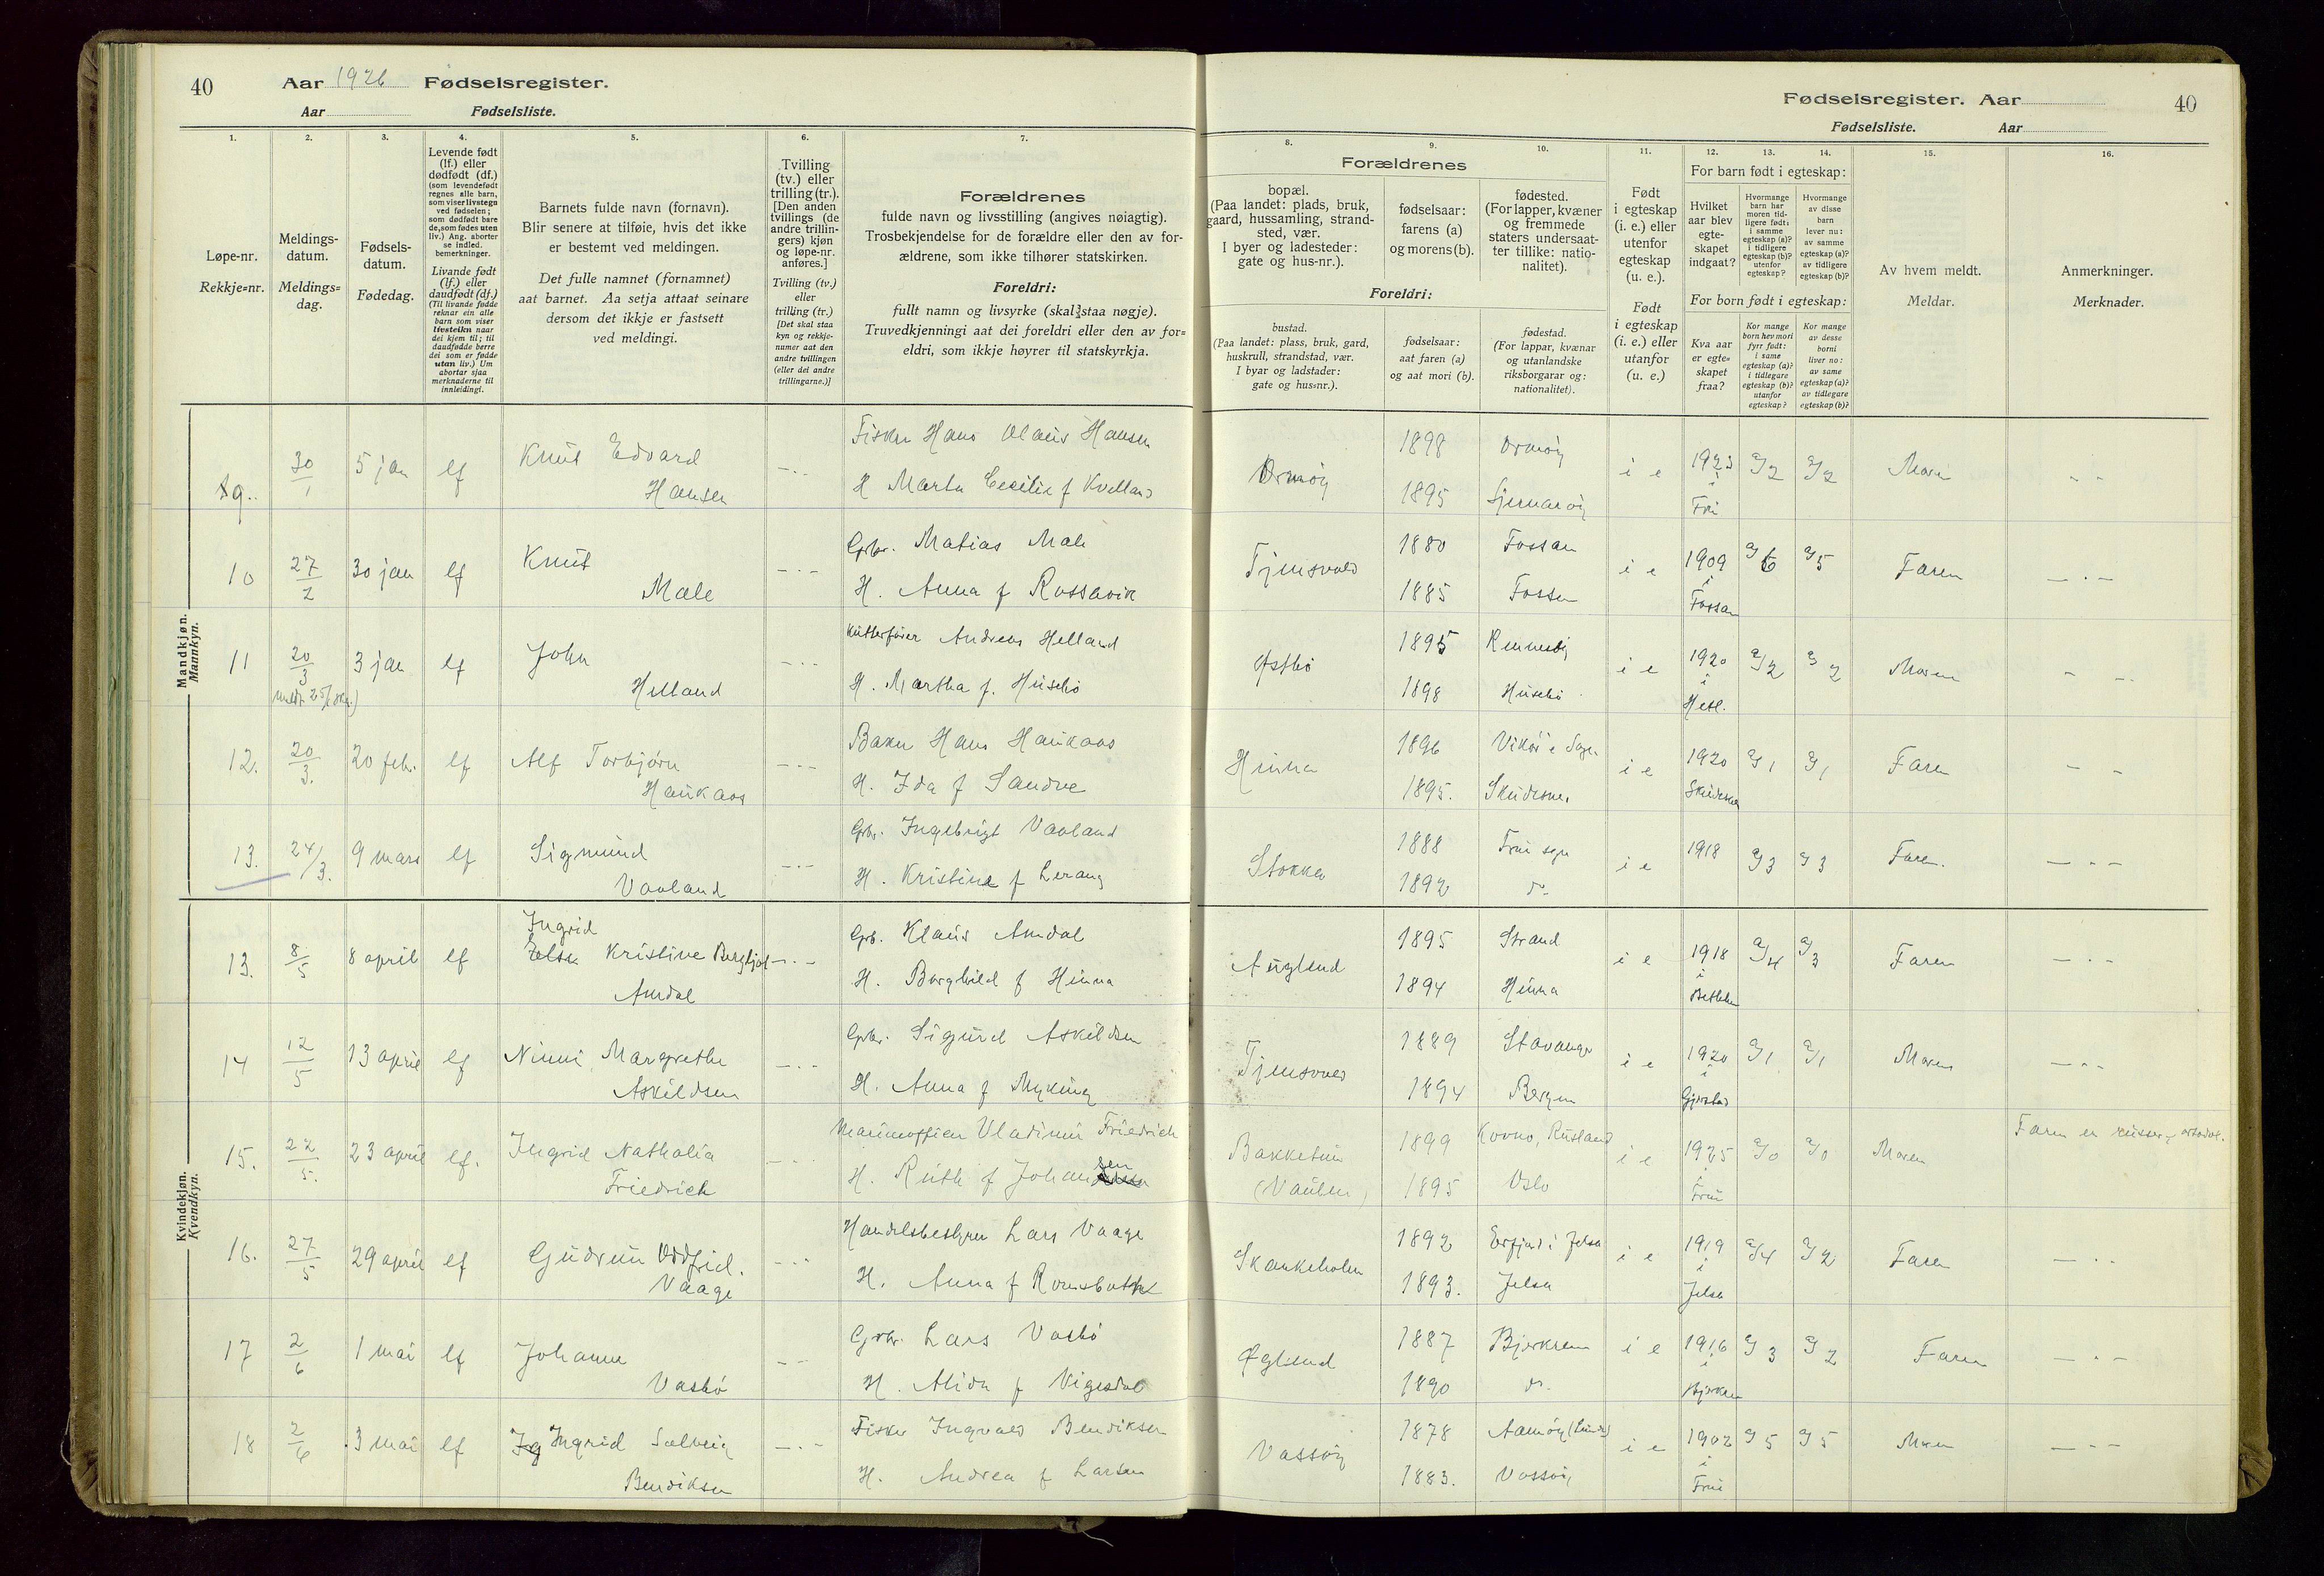 40
Aar 1926 Fødselsregister.
Aar Fødselsliste.
Fødselsregister. Aar
40
Fødselsliste. Aar
1.
Løpe-nr.
Rekkje=nr.
2.
Meldings-
datum.
Meldings=
dag.
3.
Fødsels-
datum.
Fødedag.
4.
Levende født
(lf.) eller
dødfødt (df.)
(som levendefødt
regnes alle barn,
som viser livstegn
ved fødselen;
som dødfødt bare
de, som fødes uten
liv.) Ang. aborter
se indled.
bemerkninger.
Livande født
(lf.) eller
daudfødt (df.)
(Til livande fødde
reknar ein alle
barn som viser
livsteikn naar
dei kjem til; til
daudfødde berre
dei som er fødde
utan liv.) Um
abortar sjaa
merknaderne til
innleidingi.
5.
Barnets fulde navn (fornavn).
Blir senere at tilføie, hvis det ikke
er bestemt ved meldingen.
Det fulle namnet (fornamnet)
aat barnet. Aa setja attaat seinare
dersom det ikkje er fastsett
ved meldingi.
6.
Tvilling
(tv.) eller
trilling (tr.).
[Den anden
tvillings (de
andre trillin-
gers) kjøn
og løpe-nr.
anføres.]
Tvilling (tv.)
eller
trilling (tr.)
[Det skal staa
kyn og rekkje-
numer aat den
andre tvillingen
(eller dei andre
trillingarne.)]
7.
Forældrenes
fulde navn og livsstilling (angives nøiagtig).
Trosbekjendelse for de forældre eller den av for-
ældrene, som ikke tilhører statskirken.
Foreldri:
fullt namn og livsyrke (skal staa nøgje).
Truvedkjenningi aat dei foreldri eller den av for=
eldri, som ikkje høyrer til statskyrkja.
8.
Forældrenes
bopæl.
(Paa landet: plads, bruk,
gaard, hussamling, strand-
sted, vær.
I byer og ladesteder:
gate og hus-nr.).
Foreldri:
bustad.
(Paa landet: plass, bruk, gard,
huskrull, strandstad, vær.
I byar og ladstader:
gate og hus=nr.).
9.
fødselsaar:
farens (a)
og morens (b).
fødselsaar:
aat faren (a)
og aat mori (b).
10.
fødested.
(For lapper, kvæner
og fremmede
staters undersaat-
ter tillike: natio-
nalitet).
fødestad.
(For lappar, kvænar
og utanlandske
riksborgarar og:
nationalitet).
11.
Født
i egteskap
(i. e.) eller
utenfor
egteskap
(u. e.).
Født
i egteskap
(i. e.) eller
utanfor
(u. e.)
12.
For barn født i egteskap:
Hvilket
aar blev
egte-
skapet
indgaat?
For born født i egteskap:
Kva aar
er egte=
skapet
fraa?
13.
Hvormange
barn har
moren tid-
ligere født:
i samme
egteskap (a)?
i tidligere
egteskap (b)?
utenfor
egteskap?
Kor mange
born hev mori
fyrr født:
i same
egteskap (a)?
i tidlegare
egteskap (b)?
utanfor
egteskap?
14.
Hvormange
av disse
barn
lever nu:
av samme
egteskap (a)?
av tidligere
egteskap (b)?
Kor mange
av desse
borni
liver no:
av same
egteskap (a)?
av tidlegare
egteskap (b)?
15.
Av hvem meldt.
Meldar.
16.
Anmerkninger.
Merknader.
Mandkjøn.
Mannkyn.
9. 30/1 5 jan lf Knut Edvard Hansen
Fisker Hans Olaus Hansen
H Marta Cecilie f Kvelland
Ormøy 1898 Ormøy
1895 Sjernarøy
i e 1923 i Frue a/2 a/2 Moren
10 27/2 30 jan lf Knut Male
Gbr. Matias Male
H. Anna f Rossavik
Tjensvold 1880 Fossan
1885 Fossan
i e 1909 i Fossan a/6 a/5 Faren
11 20/3 3 jan lf John Helland
Kutterfører Andreas Helland
H. Martha f. Husebø
Østbø 1895 Rennesøy
1898 Husebø
i e 1920 i Hetl. a/2 a/2 Moren
12. 20/3. 20 feb. lf Alf Torbjørn Haukaas
Baker Hans Haukaas
H. Ida f Sandve
Hinna 1896 Vikør
1895. Skudesnes
i e 1920 Skudesnes a/1 a/1 Faren
13. 24/3. 9 mars lf Sigmund Vaaland
Gbr. Ingebrigt Vaaland
H. Kristine f Lerang
Stokka 1888 Frue sogn
1892 do
i e 1918 a/3 a/3 Faren.
Kvindekjøn.
Kvendkyn.
13. 8/5 8 april lf Ingrid Else Kristine Bergljot Amdal
Gbr. Klaus Amdal
H. Borghild f Hinna
Auglend 1895 Strand
1894 Hinna
i e 1918 i Betlehem a/4 a/3 Faren
14 12/5 13 april lf Ninni Margrethe Askildsen
Gbr. Sigurd Askildsen
H. Anna f Myking
Tjensvold 1889 Stavanger
1894 Bergen
i e 1920 i Gjerstad a/1 a/1 Moren
15. 22/5. 23 april lf. Ingrid Nathalia Friedrich
Marineoffiser Vladimir Friedrich
H. Ruth f Johansen
Bakketun (Vaulen) 1899 Kovno, Rusland
1895 Oslo
i e 1925 i Frue a/0 a/0 Moren
Faren er russer, ortodoks.
16. 27/5 29 april lf Gudrun Oddfrid. Vaage
Handelsbestyrer Lars Vaage
H. Anna f Romsbotn
Skankeholen 1892 Erfjord i Jelsa
1893. Jelsa
i e 1919 i Jelsa a/4 a/2 Faren
17 2/6 1 mai lf Johanne Vasbø
Gbr. Lars Vasbø
H. Alida f Vigesdal
Øglend 1887 Bjerkreim
1890 do
i e 1916 i Bjerkreim a/3 a/2 Faren
18 2/6 3 mai lf Ingrid Solveig Bendiksen
Fisker Ingvald Bendiksen
H. Andrea f Larsen
Vassøy 1878 Aamøy
1883. Vassøy
i e 1902 i Frue a/5 a/5 Moren